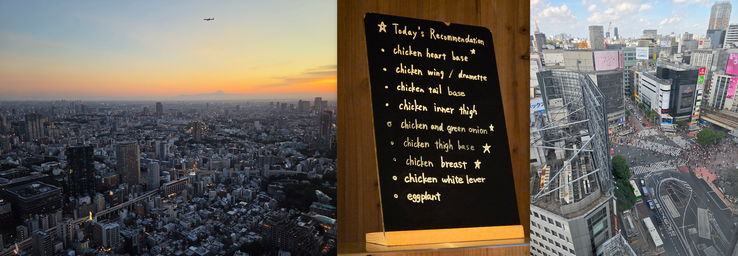 ☆ Today's Recommendation
• chicken heart base ☆
• chicken wing / drumette
• chicken tail base
• chicken inner thigh
○ chicken and green onion ☆
○ chicken thigh base ☆
○ chicken breast ☆
○ chicken white lever
○ eggplant